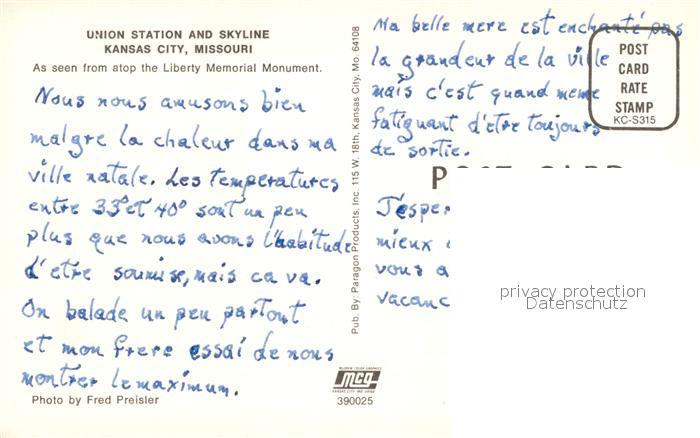 UNION STATION AND SKYLINE
KANSAS CITY, MISSOURI
As seen from atop the Liberty Memorial Monument.
Nous nous amusons bien
malgre la chaleur dans ma
ville natale. Les temperatures
entre 33° et 40° sont un peu
plus que nous avons l'habitude
d'etre soumise, mais ca va.
On balade un peu partout
et mon frere essai de nous
montrer le maximum.
Photo by Fred Preisler
Pub. By: Paragon Products, Inc. 115 W. 18th. Kansas City, Mo. 64108
mcg
390025
Ma belle mere est enchanté pas
la grandeur de la ville
mais c'est quand meme
fatiguant d'etre toujours
de sortie.
POST
CARD
RATE
STAMP
KC-S315
POST CARD
J'esper
mieux
vous a
vacanc
privacy protection
Datenschutz